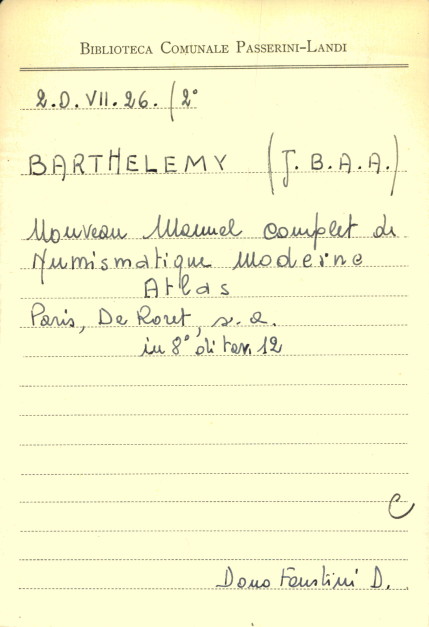 BIBLIOTECA COMUNALE PASSERINI-LANDI
2.D.VII.26. (2°
BARTHELEMY (J.B.A.A.)
Nouveau Manuel complet de
Numismatique Moderne
Atlas
Paris, De Roret, s.a.
in 8° di tav. 12
C
Dono Faustini D.